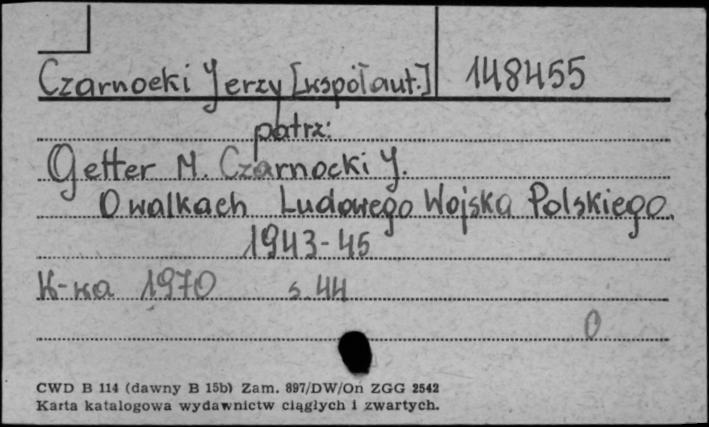 Czarnocki Jerzy [współaut.] 148455
patrz:
Getter M. Czarnocki J.
O walkach Ludowego Wojska Polskiego
1943-45
K-ka 1970 s. 44
0
CWD B 114 (dawny B 15b) Zam. 897/DW/On ZGG 2542
Karta katalogowa wydawnictw ciągłych i zwartych.